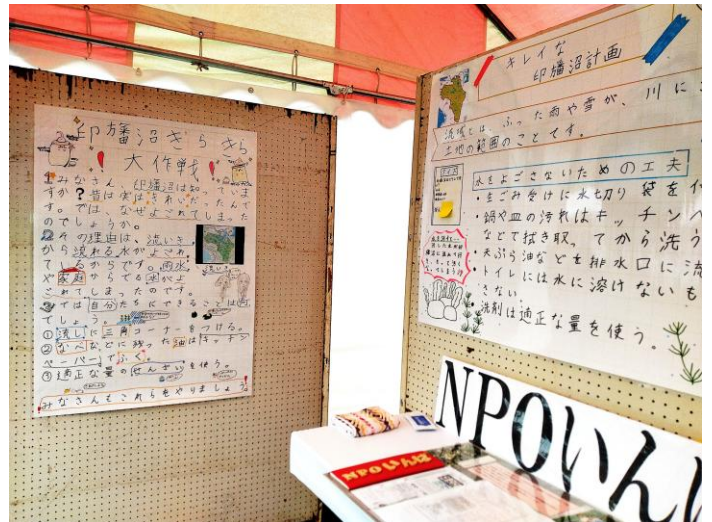 印旛沼きらきら
大作戦!
みなさん、印旛沼は知っていま
すか?昔は実はきれいだったんで
す。では、なぜよごれてしまった
のでしょうか。
その理由は、流いき
から流れる水がよごれ
てしまってからです。雨水
や家庭からでる水がよ
ごれてしまったのです。
では自分たちにできることは何
でしょう。
①流しに三角コーナーをつける。
②なべなどに残った油はキッチン
ペーパーでふく
③適正な量のせんざいを使う。
みなさんもこれらをやりましょう。
キレイな
印旛沼計画
流域とは、ふった雨や雪が、川に
土地の範囲のことです。
水をよごさないための工夫
・生ごみ受けに水切り袋を付
・鍋や皿の汚れはキッチンペ
などで拭き取ってから洗う
・天ぷら油などを排水口に流
・トイレには水に溶けないも
さない。
洗剤は適正な量を使う。
NPOいんば
NPOいんば